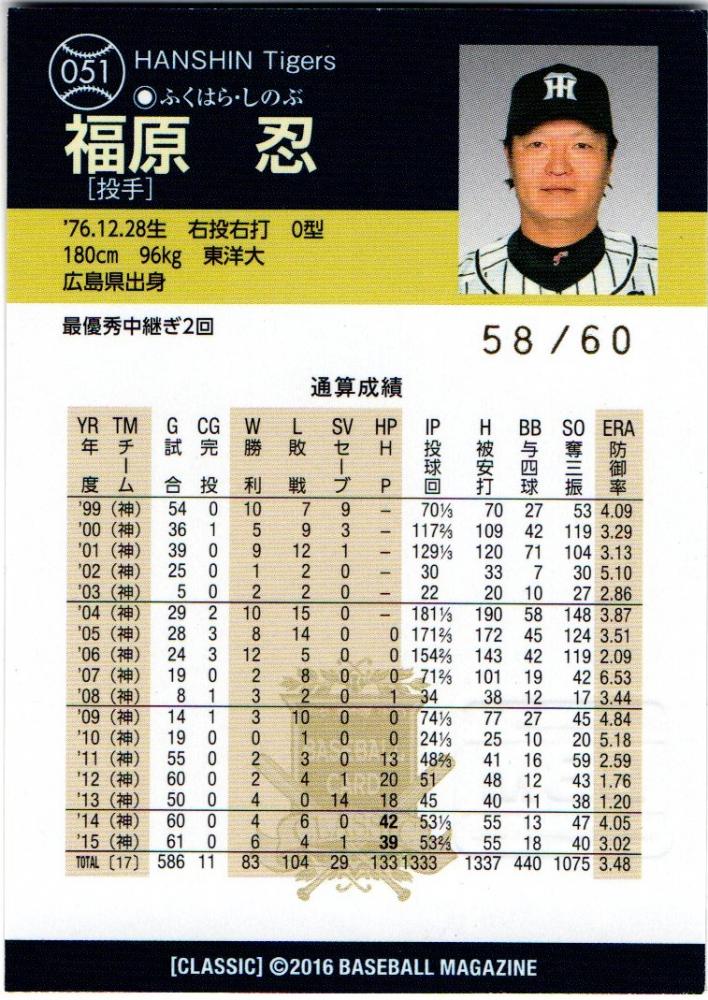 051
HANSHIN Tigers
ふくはら・しのぶ
福原 忍
[投手]
'76.12.28生 右投右打 O型
180cm 96kg 東洋大
広島県出身
最優秀中継ぎ2回
58/60
通算成績
YR TM G CG W L SV HP IP H BB SO ERA
年度 チーム 試合 完投 勝利 敗戦 セーブ HP 投球回 被安打 与四球 奪三振 防御率
'99 (神) 54 0 10 7 9 – 70⅓ 70 27 53 4.09
'00 (神) 36 1 5 9 3 – 117⅔ 109 42 119 3.29
'01 (神) 39 0 9 12 1 – 129⅓ 120 71 104 3.13
'02 (神) 25 0 1 2 0 – 30 33 7 30 5.10
'03 (神) 5 0 2 2 0 – 22 20 10 27 2.86
'04 (神) 29 2 10 15 0 – 181⅓ 190 58 148 3.87
'05 (神) 28 3 8 14 0 0 171⅔ 172 45 124 3.51
'06 (神) 24 3 12 5 0 0 154⅔ 143 42 119 2.09
'07 (神) 19 0 2 8 0 0 71⅔ 101 19 42 6.53
'08 (神) 8 1 3 2 0 1 34 38 12 17 3.44
'09 (神) 14 1 3 10 0 0 74⅓ 77 27 45 4.84
'10 (神) 19 0 0 1 0 0 24⅓ 25 10 20 5.18
'11 (神) 55 0 2 3 0 13 48⅔ 41 16 59 2.59
'12 (神) 60 0 2 4 1 20 51 48 12 43 1.76
'13 (神) 50 0 4 0 14 18 45 40 11 38 1.20
'14 (神) 60 0 4 6 0 42 53⅓ 55 13 47 4.05
'15 (神) 61 0 6 4 1 39 53⅔ 55 18 40 3.02
TOTAL [17] 586 11 83 104 29 133 1333 1337 440 1075 3.48
BASEBALL
CARD
CLASSIC
[CLASSIC] ©2016 BASEBALL MAGAZINE